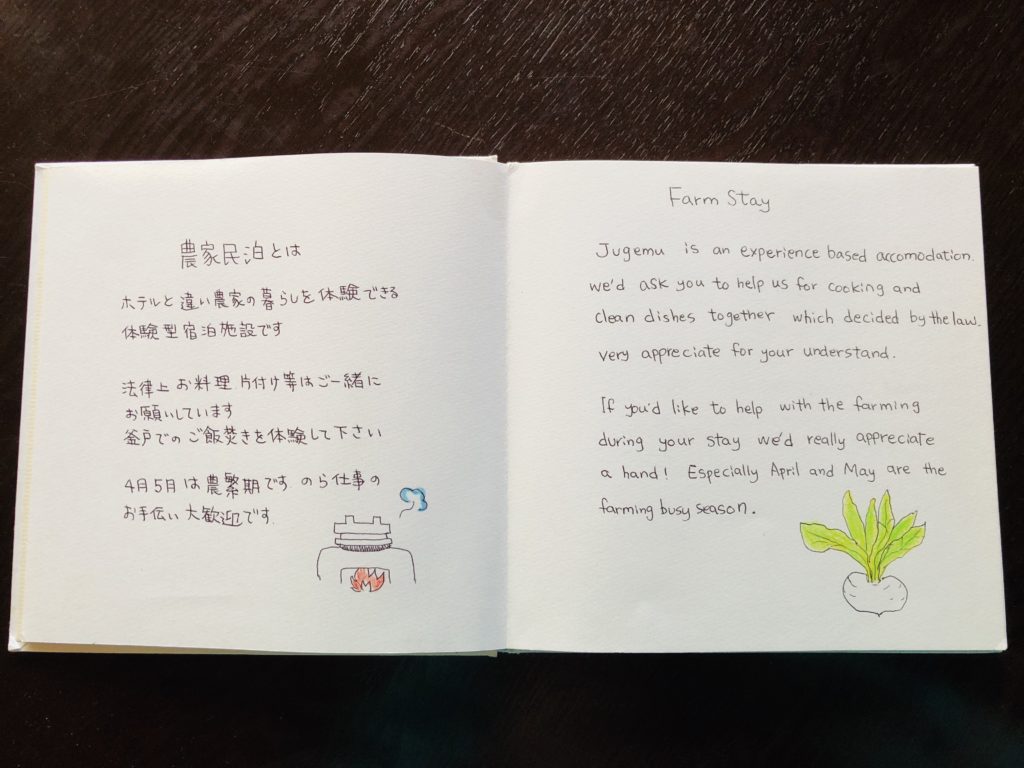 農家民泊とは
ホテルと違い農家の暮らしを体験できる
体験型宿泊施設です
法律上お料理片付け等はご一緒に
お願いしています
釜戸でのご飯焚きを体験して下さい
4月5月は農繁期です のら仕事の
お手伝い大歓迎です.
Farm Stay
Jugemu is an experience based accomodation.
we'd ask you to help us for cooking and
clean dishes together which decided by the law.
very appreciate for your understand.
If you'd like to help with the farming
during your stay we'd really appreciate
a hand! Especially April and May are the
farming busy season.